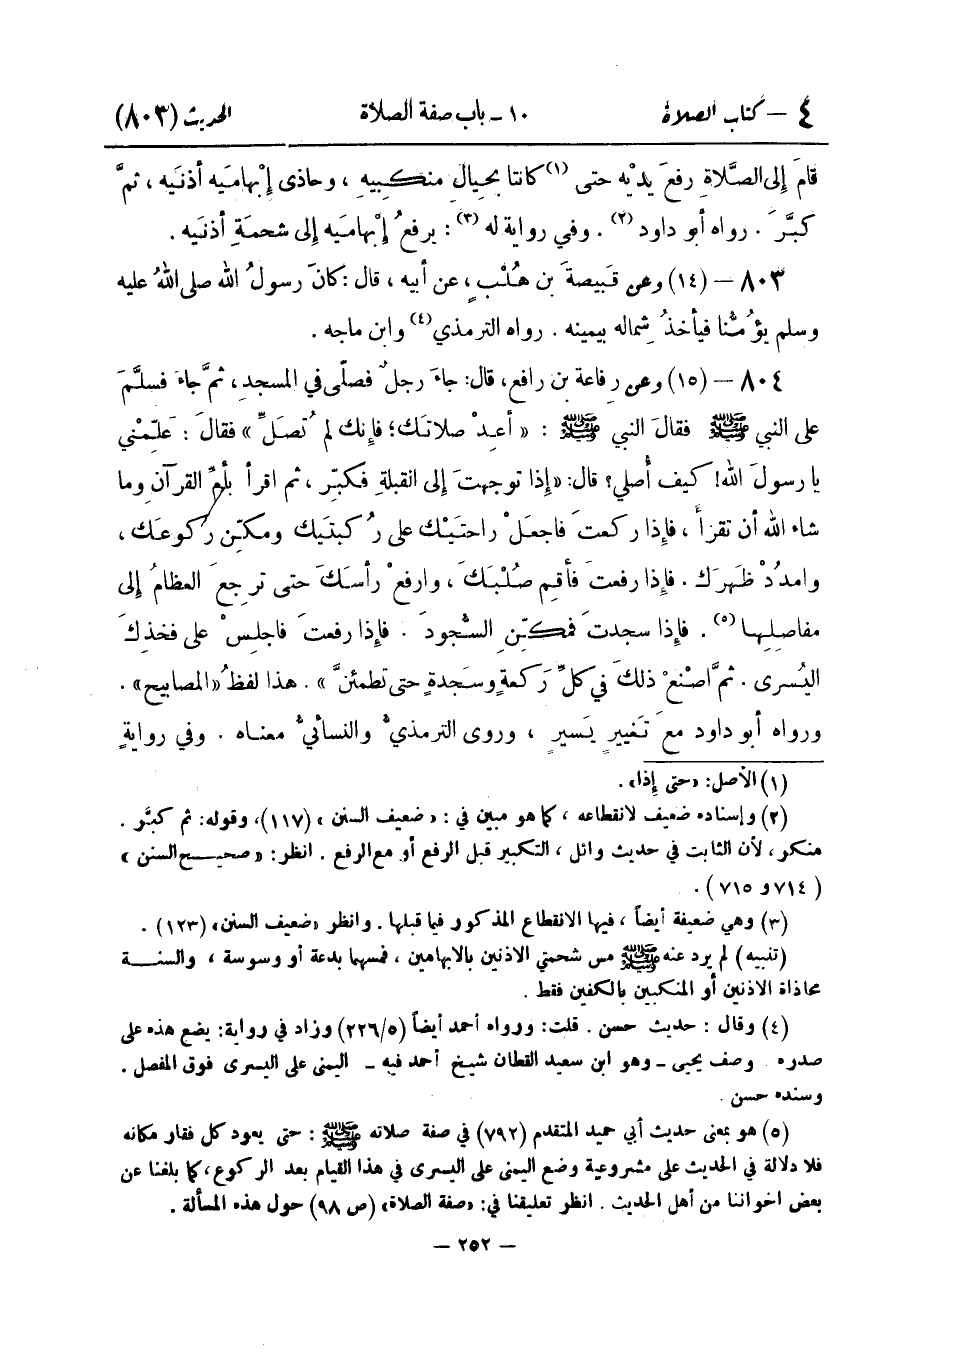 ٤ – كتاب الصلاة ١٠ – باب صفة الصلاة الحديث (٨٠٣)
قامَ إلى الصَّلاةِ رفعَ يديْه حتى (١) كانتا بحِيالِ منكِبيهِ ، وحاذى إبْهاميَه أذنيَه ، ثمَّ
كبَّرَ . رواه أبو داود (٢) . وفي رواية له (٣) : يرفعُ إبْهاميَه إلى شحمَةِ أذنيَه .
٨٠٣ – (١٤) وعن قَبيصةَ بن هُلْبٍ ، عن أبيه ، قال : كانَ رسولُ الله صلى اللهُ عليه
وسلم يؤمُّنا فيأخذُ شِماله بيمينه . رواه الترمذي (٤) وابن ماجه .
٨٠٤ – (١٥) وعن رفاعة بن رافع، قال: جاءَ رجلٌ فصلّى في المسجدِ ، ثمَّ جاءَ فسلَّمَ
على النبي ﷺ فقال النبي ﷺ : « أعِدْ صلاتكَ؛ فإنك لم تُصلِّ » فقالَ : علِّمْني
يا رسولَ الله! كيف أُصلي؟ قال: «إذا توجهتَ إلى القبلةِ فكبِّر ، ثم اقرأ بأمِّ القرآن وما
شاء الله أن تقرأَ ، فإذا ركعتَ فاجعلْ راحتَيْك على رُكبتَيك ومكِّن ركوعَك ،
وامدُدْ ظهرَك . فإذا رفعتَ فأقِم صُلْبَكَ ، وارفعْ رأسَكَ حتى ترجعَ العظامُ إلى
مفاصِلِها (٥) . فإذا سجدتَ فمكِّنِ السُّجودَ . فإذا رفعتَ فاجلِسْ على فخذِكَ
اليُسرى . ثمَّ اصنعْ ذلكَ في كلِّ رَكعةٍ وسَجدةٍ حتى تطمئنَّ » . هذا لفظُ «المصابيح» .
ورواه أبو داود معَ تغييرٍ يَسيرٍ ، وروى الترمذيُّ والنسائيُّ معناه . وفي روايةٍ
(١) الأصل: «حتى إذا» .
(٢) وإسناده ضعيف لانقطاعه ، كما هو مبين في : « ضعيف السنن » (١١٧)، وقوله: ثم كبَّر .
منكر ، لأن الثابت في حديث وائل ، التكبير قبل الرفع أو مع الرفع . انظر : « صحيح السنن »
(٧١٤ و ٧١٥) .
(٣) وهي ضعيفة أيضاً ، فيها الانقطاع المذكور فيما قبلها . وانظر «ضعيف السنن» (١٢٣) .
(تنبيه) لم يرد عنه ﷺ مس شحمتي الاذنين بالابهامين ، فمسهما بدعة أو وسوسة ، والسنة
محاذاة الاذنين أو المنكبين بالكفين فقط .
(٤) وقال : حديث حسن . قلت: ورواه أحمد أيضاً (٢٢٦/٥) وزاد في رواية: يضع هذه على
صدره . وصف يحيى – وهو ابن سعيد القطان شيخ أحمد فيه – اليمنى على اليسرى فوق المفصل .
وسنده حسن .
(٥) هو بمعنى حديث أبي حميد المتقدم (٧٩٢) في صفة صلاته ﷺ : حتى يعود كل فقار مكانه
فلا دلالة في الحديث على مشروعية وضع اليمنى على اليسرى في هذا القيام بعد الركوع ، كما بلغنا عن
بعض اخواننا من أهل الحديث . انظر تعليقنا في: «صفة الصلاة» (ص ٩٨) حول هذه المسألة .
– ٢٥٢ –